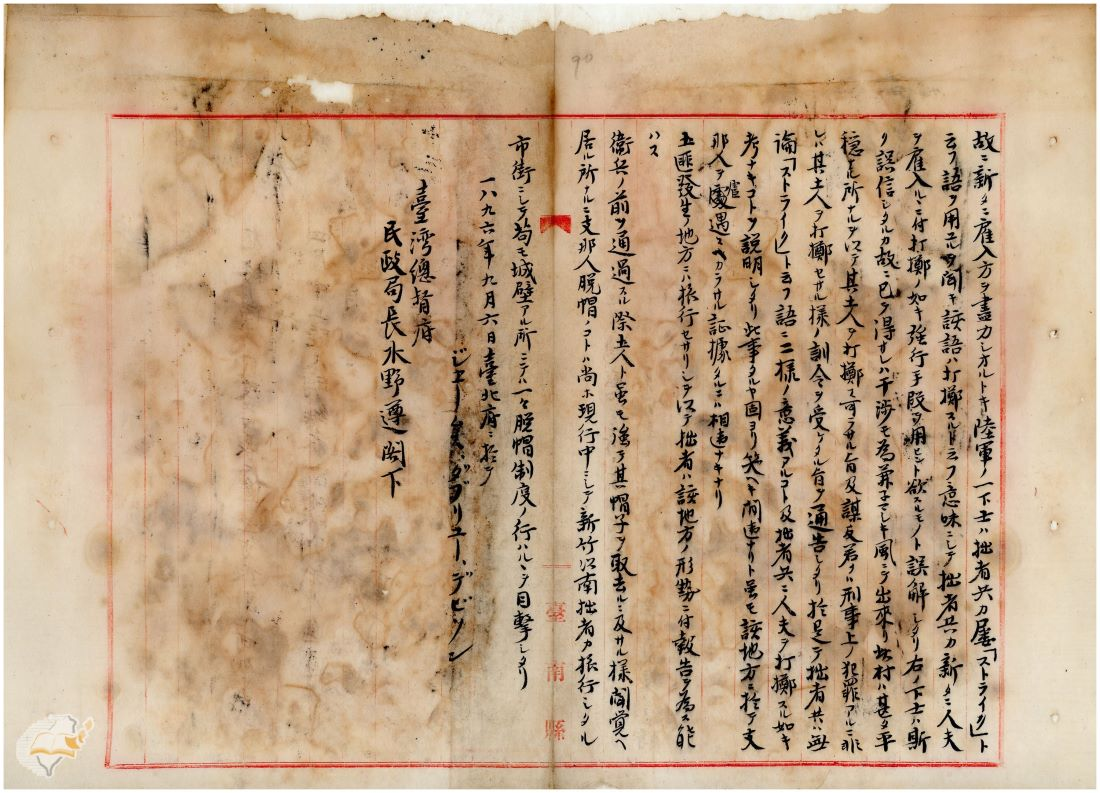 90
故ニ新タニ雇入方ヲ盡力シオルトキ陸軍ノ一下士ハ拙者共カ屢「ストライク」ト
云フ語ヲ用ユルヲ聞キ該語ハ打擲スルト云フ意味ニシテ拙者共カ新タニ人夫
ヲ雇入ルニ付打擲ノ如キ強行手段ヲ用ヒント欲スルモノト誤解シタリ右ノ下士ハ斯
ク誤信シタルカ故ニ已ヲ得ナレハ干渉モ為兼子マシキ風ニテ出來リ此村ハ甚タ平
穏ナル所ナルヲ以テ其土人ヲ打擲ス可ラサル旨及謀反若クハ刑事上ノ犯罪アルニ非
レハ其土人ヲ打擲セサル様ノ訓令ヲ受ケタル旨ヲ通告シタリ於是テ拙者共ハ無
論「ストライク」ト云フ語ニ二様ノ意義アルコト及拙者共ニ人夫ヲ打擲スル如キ
考ナキコトヲ説明シタリ此事タルヤ固ヨリ笑ヘキ間違ナリト虽モ該地方ニ於テ支
那人ヲ虐遇スヘカラサル証據タルニハ相違ナキナリ
土匪發生ノ地方ニハ旅行セサリシヲ以テ拙者ハ該地方ノ形勢ニ付報告ヲ為ス能
ハス
衛兵ノ前ヲ通過スル際土人ト虽モ強テ其帽子ヲ取去ルニ及サル様聞覚ヘ
居ル所ナルニ支那人脱帽ノコトハ尚ホ現行中ニシテ新竹以南拙者カ旅行シタル
市街ニシテ苟モ城壁アル所ニテハ一々脱帽制度ノ行ハルヽヲ目撃シタリ
一八九六年九月六日臺北府ニ於テ
ジエー、ダブリユー、デビソン
臺湾總督府
民政局長水野遵閣下
臺南縣